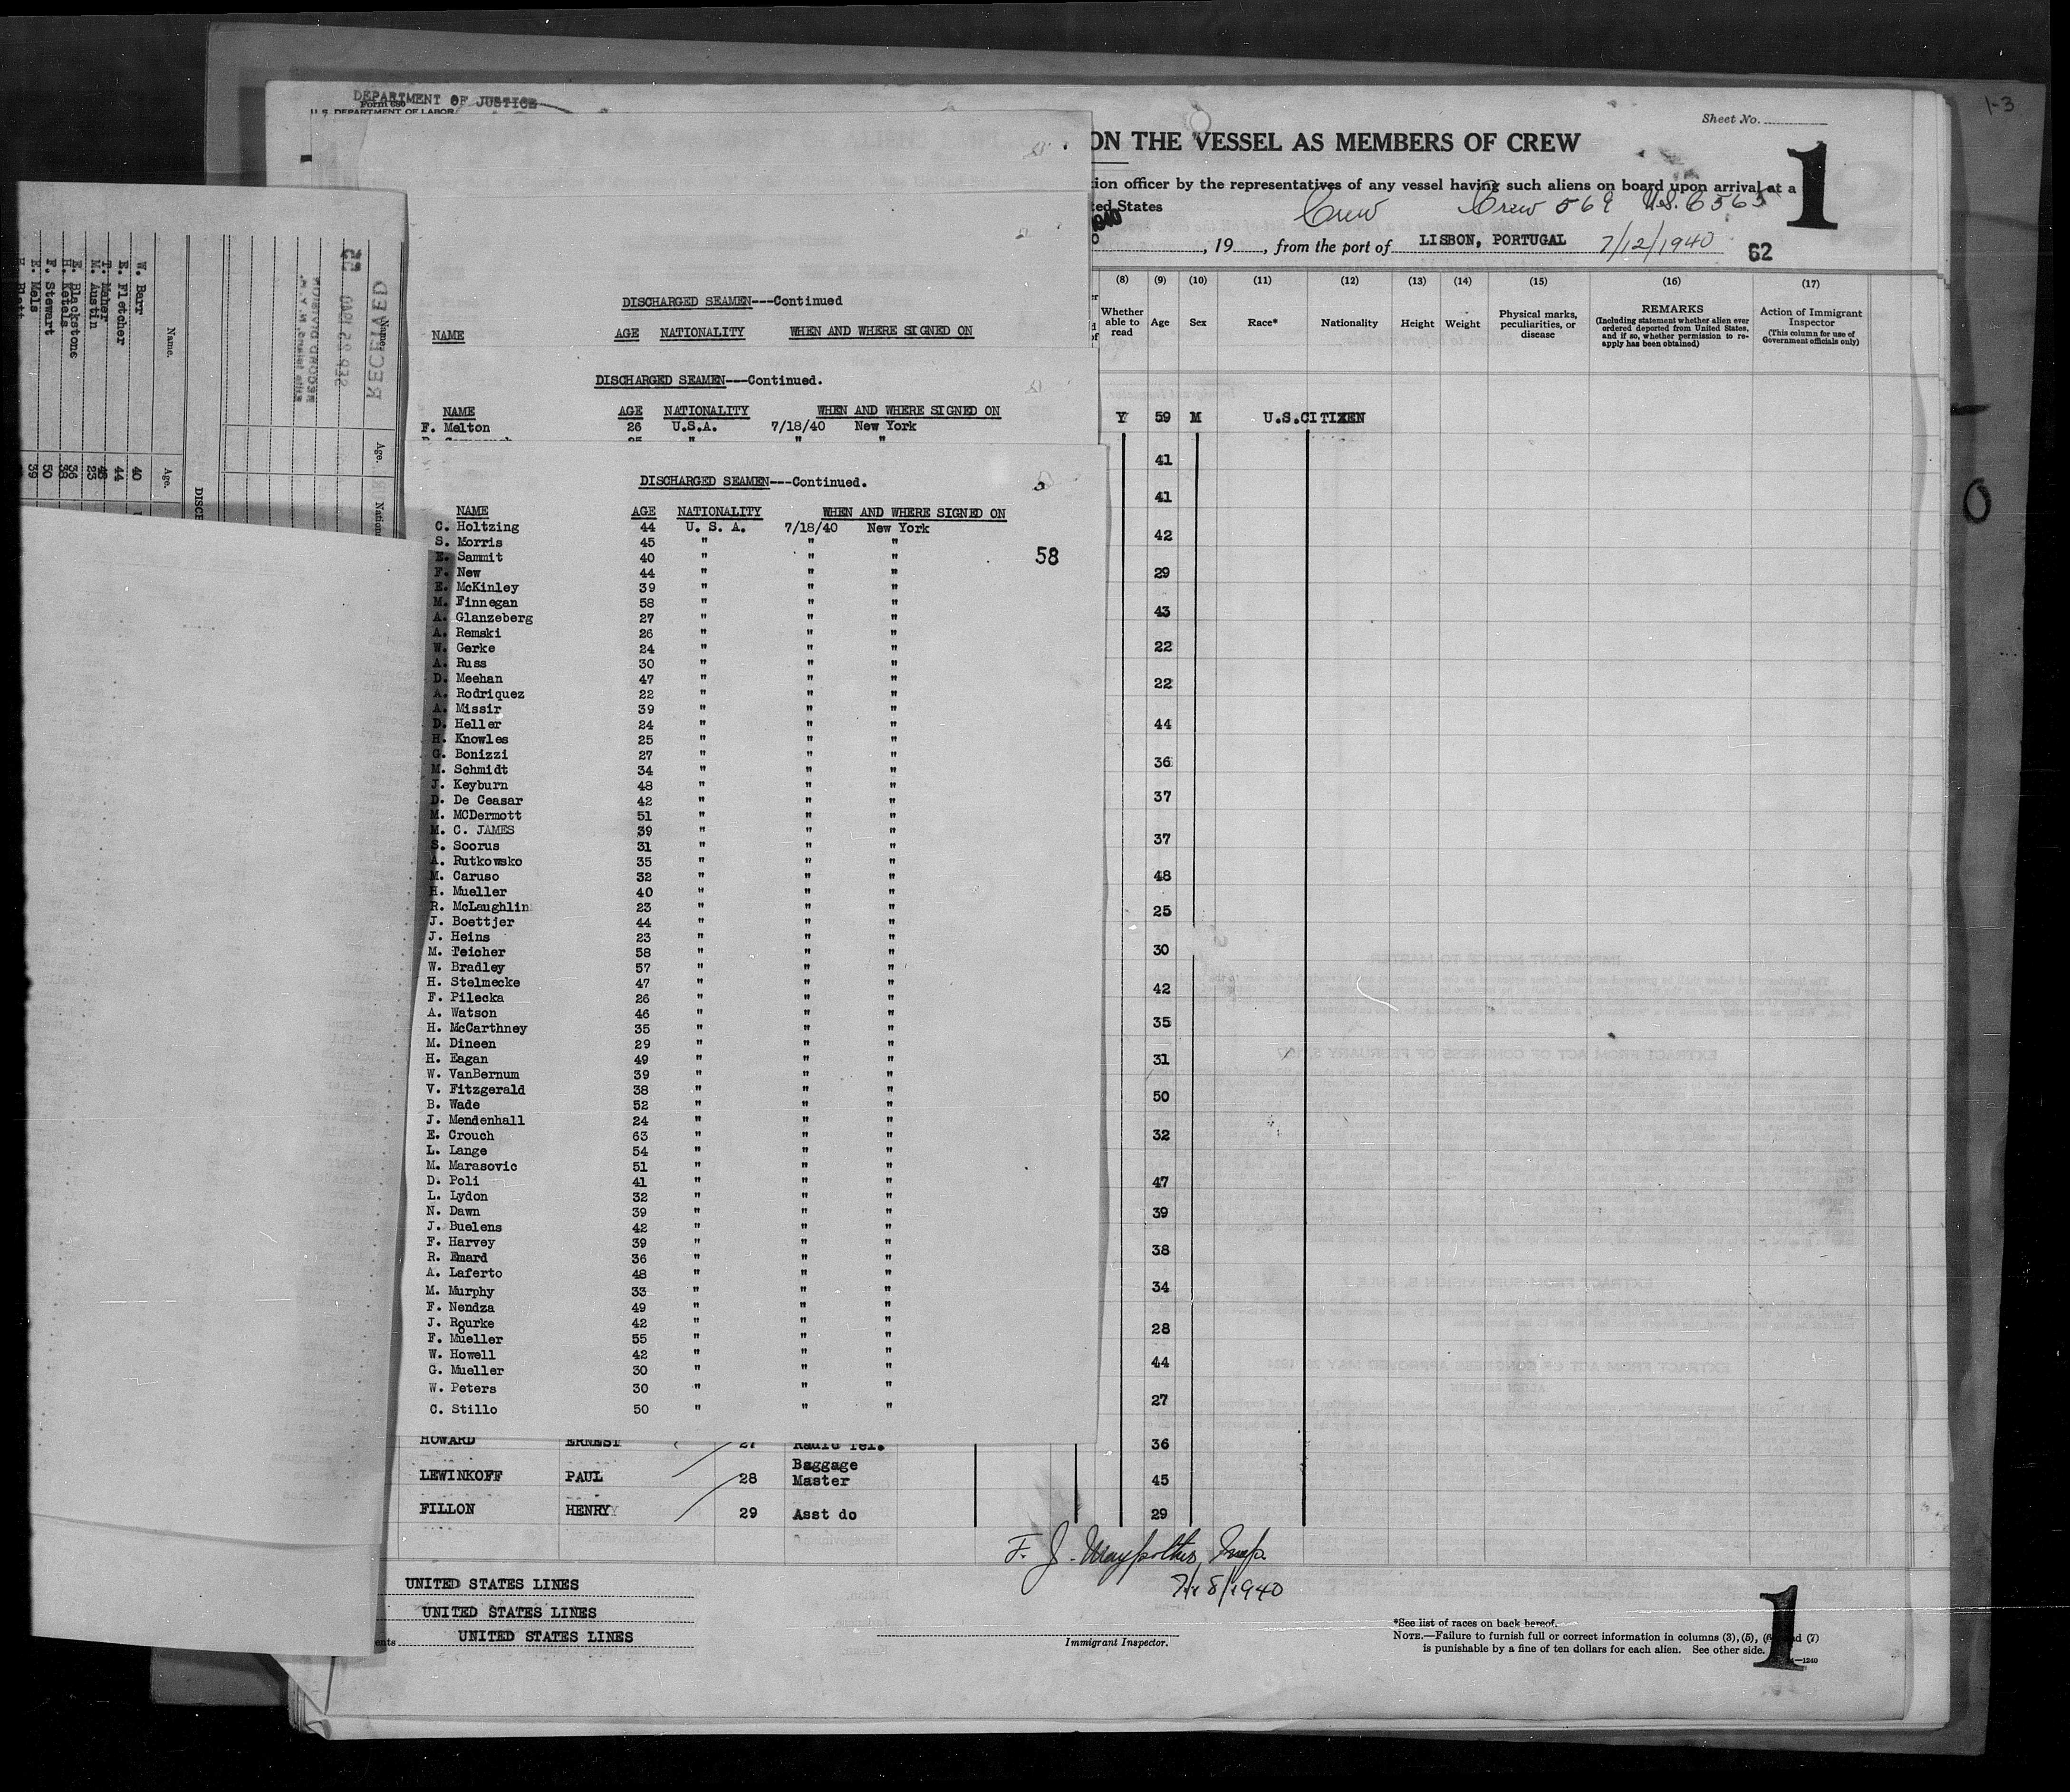 DEPARTMENT OF JUSTICE
Form 680
U.S. DEPARTMENT OF LABOR
Sheet No.
1-3
ON THE VESSEL AS MEMBERS OF CREW
1
tion officer by the representatives of any vessel having such aliens on board upon arrival at a
ted States
Crew Crew 569 U.S. C 565
, 19 , from the port of LISBON, PORTUGAL 7/12/1940
62
(8) (9) (10) (11) (12) (13) (14) (15) (16) (17)
Whether able to read Age Sex Race* Nationality Height Weight Physical marks, peculiarities, or disease REMARKS (Including statement whether alien ever ordered deported from United States, and if so, whether permission to re-apply has been obtained) Action of Immigrant Inspector (This column for use of Government officials only)
Y 59 M U.S.CITIZEN
41
41
42
29
43
22
22
44
36
37
37
48
25
30
42
35
31
50
32
47
39
38
34
28
44
27
36
45
29
DISCHARGED SEAMEN---Continued
NAME AGE NATIONALITY WHEN AND WHERE SIGNED ON
DISCHARGED SEAMEN---Continued.
NAME AGE NATIONALITY WHEN AND WHERE SIGNED ON
F. Melton 26 U.S.A. 7/18/40 New York
DISCHARGED SEAMEN---Continued.
NAME AGE NATIONALITY WHEN AND WHERE SIGNED ON
C. Holtzing 44 U. S. A. 7/18/40 New York
S. Morris 45 " " "
E. Sammit 40 " " "
58
F. New 44 " " "
E. McKinley 39 " " "
M. Finnegan 58 " " "
A. Glanzeberg 27 " " "
A. Remski 26 " " "
W. Gerke 24 " " "
A. Russ 30 " " "
D. Meehan 47 " " "
A. Rodriquez 22 " " "
A. Missir 39 " " "
D. Heller 24 " " "
H. Knowles 25 " " "
G. Bonizzi 27 " " "
M. Schmidt 34 " " "
J. Keyburn 48 " " "
D. De Ceasar 42 " " "
M. MCDermott 51 " " "
M. C. JAMES 39 " " "
S. Soorus 31 " " "
A. Rutkowsko 35 " " "
M. Caruso 32 " " "
H. Mueller 40 " " "
R. McLaughlin 23 " " "
J. Boettjer 44 " " "
J. Heins 23 " " "
M. Teicher 58 " " "
W. Bradley 57 " " "
H. Stelmecke 47 " " "
F. Pilecka 26 " " "
A. Watson 46 " " "
H. McCarthney 35 " " "
M. Dineen 29 " " "
H. Eagan 49 " " "
W. VanBernum 39 " " "
V. Fitzgerald 38 " " "
B. Wade 52 " " "
J. Mendenhall 24 " " "
E. Crouch 63 " " "
L. Lange 54 " " "
M. Marasovic 51 " " "
D. Poli 41 " " "
L. Lydon 32 " " "
N. Dawn 39 " " "
J. Buelens 42 " " "
F. Harvey 39 " " "
R. Emard 36 " " "
A. Laferto 48 " " "
M. Murphy 33 " " "
F. Nendza 49 " " "
J. Rourke 42 " " "
F. Mueller 55 " " "
W. Howell 42 " " "
G. Mueller 30 " " "
W. Peters 30 " " "
C. Stillo 50 " " "
HOWARD ERNEST 27 Radio Tel.
LEWINKOFF PAUL 28 Baggage Master
FILLON HENRY 29 Asst do
7/18/1940
UNITED STATES LINES
UNITED STATES LINES
ents UNITED STATES LINES
Immigrant Inspector.
*See list of races on back hereof.
NOTE.—Failure to furnish full or correct information in columns (3), (5), (6) and (7)
is punishable by a fine of ten dollars for each alien. See other side.
1
RECEIVED
RECORD DIVISION
Name. Age.
W. Barr 40
E. Fletcher 44
T. Maher
M. Austin 23
E. Blackstone 36
H. Ketels
F. Stewart 50
E. Mels 39